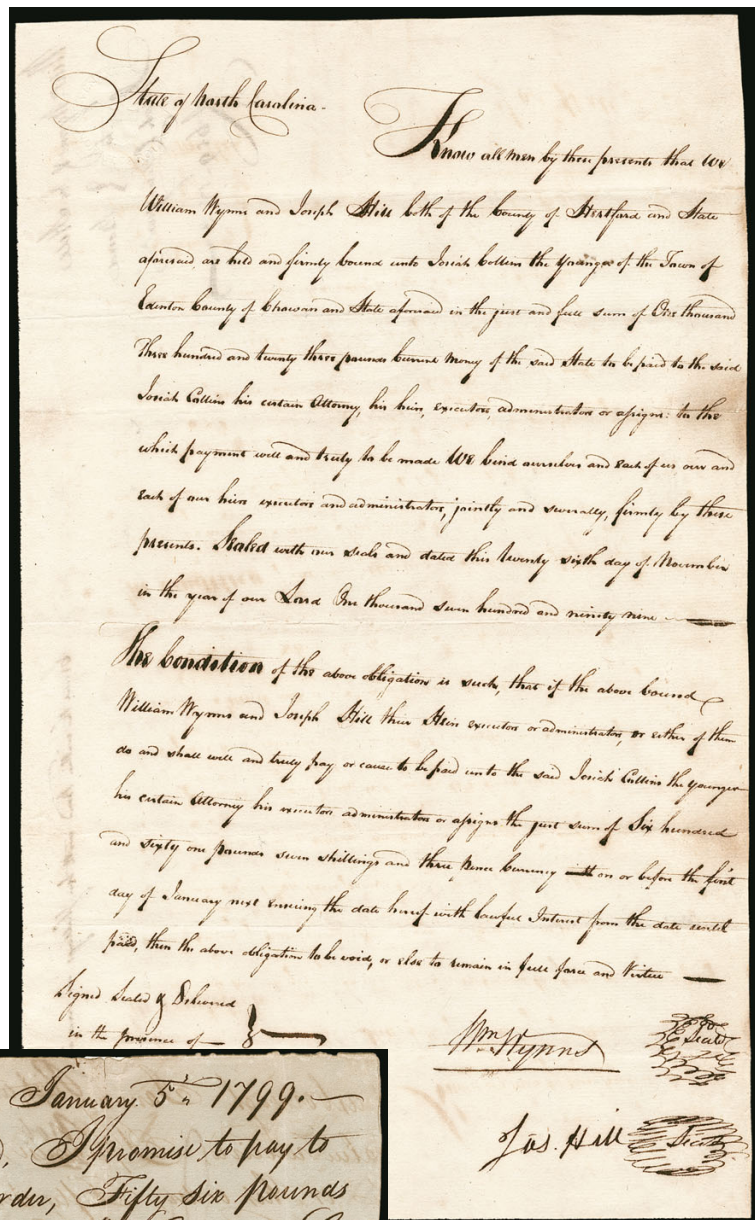 State of North Carolina -
Know all men by these presents that We
William Wynns and Joseph Hill both of the County of Hertford and State
aforesaid, are held and firmly bound unto Josiah Collins the younger of the Town of
Edenton County of Chowan and State aforesaid in the just and full sum of One thousand
Three hundred and twenty three pounds Current Money of the said State to be paid to the said
Josiah Collins his certain Attorney, his heirs, executors, administrators or assigns: to the
which payment well and truly to be made We bind ourselves and each of us our and
each of our heirs executors and administrators, jointly and severally, firmly by these
presents. Sealed with our seals and dated this twenty sixth day of November
in the year of our Lord One thousand seven hundred and ninety nine
The Condition of the above obligation is such, that if the above bound
William Wynns and Joseph Hill their Heirs executors or administrators, or either of them
do and shall well and truly pay or cause to be paid unto the said Josiah Collins the younger
his certain Attorney his executors administrators or assigns the just sum of Six hundred
and sixty one pounds seven shillings and three pence Currency on or before the first
day of January next ensuing the date hereof with lawful Interest from the date until
paid, then the above obligation to be void, or else to remain in full force and Virtue
Signed Sealed & Delivered
in the presence of
Wm. Wynns
Seal
Jos. Hill
Seal
January 5th 1799. -
, I promise to pay to
rder, Fifty six pounds